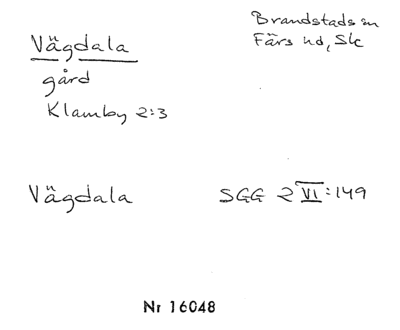 Brandstads sn
Färs hd, Sk
Vägdala
gård
Klamby 2:3
Vägdala SGG 2 VI:149
Nr 16048